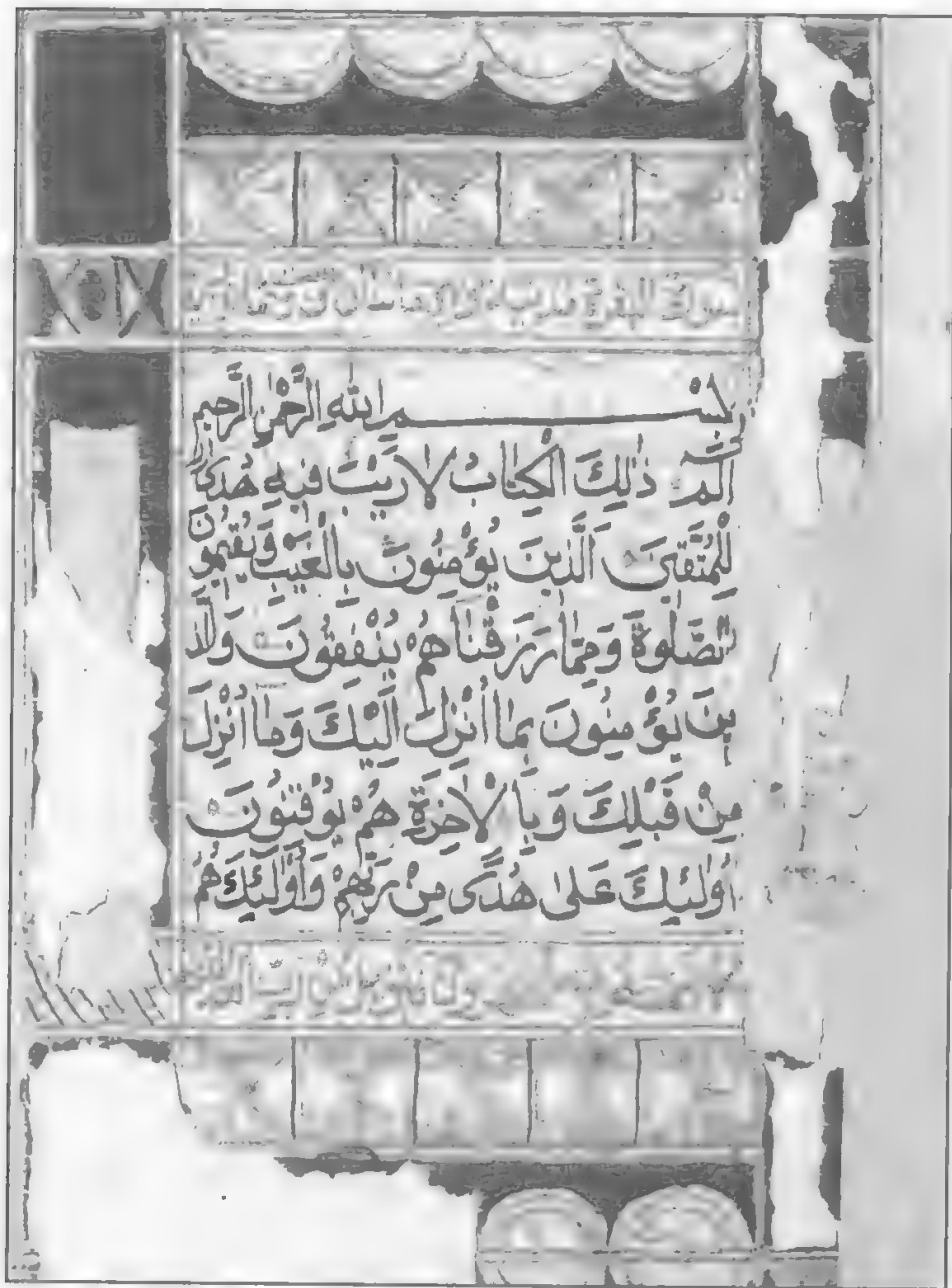 سورة البقرة
بِسْمِ اللّٰهِ الرَّحْمٰنِ الرَّحِيمِ
الٓمٓ ذٰلِكَ الْكِتَابُ لَا رَيْبَ فِيهِ هُدًى
لِلْمُتَّقِينَ الَّذِينَ يُؤْمِنُونَ بِالْغَيْبِ وَيُقِيمُونَ
الصَّلٰوةَ وَمِمَّا رَزَقْنَاهُمْ يُنْفِقُونَ وَالَّذِ
ينَ يُؤْمِنُونَ بِمَا أُنْزِلَ اِلَيْكَ وَمَا أُنْزِلَ
مِنْ قَبْلِكَ وَبِالْاٰخِرَةِ هُمْ يُوْقِنُونَ
أُولٰئِكَ عَلٰى هُدًى مِنْ رَبِّهِمْ وَأُولٰئِكَ هُمُ